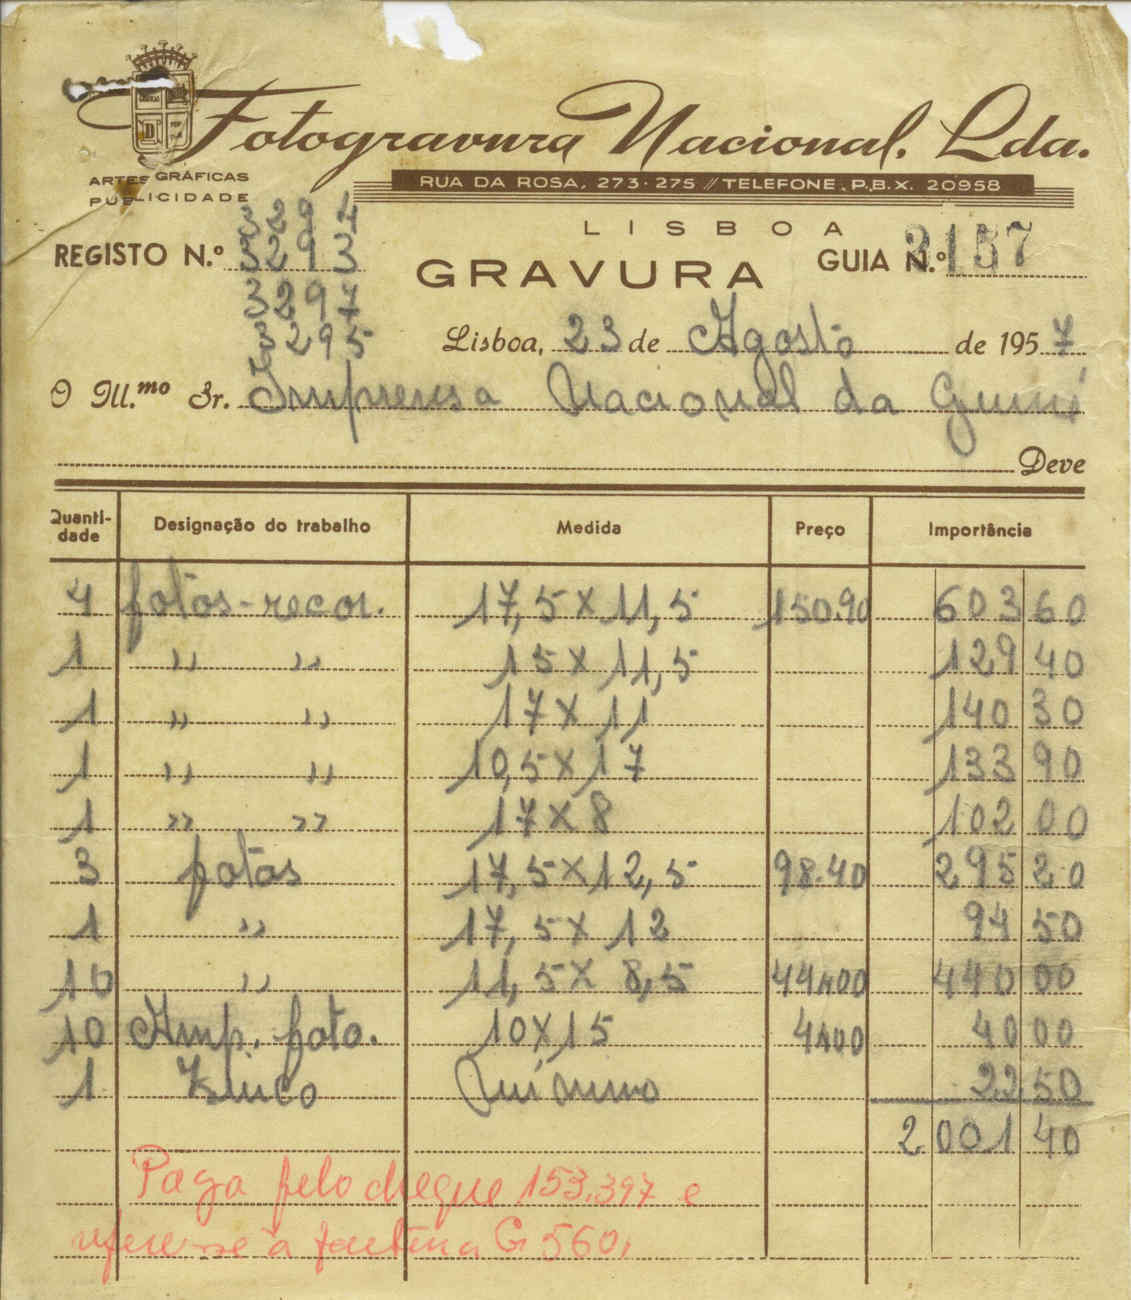 Fotogravura Nacional, Lda.
ARTES GRÁFICAS
PUBLICIDADE
RUA DA ROSA, 273-275 // TELEFONE, P.B.X. 20958
LISBOA
3292
REGISTO N.º 3293
GUIA N.º 3157
GRAVURA
3297
3295
Lisboa, 23 de Agosto de 1957
O Ill.mo Sr. Imprensa Nacional da Guiné
Deve
Quantidade Designação do trabalho Medida Preço Importância
4 fotos-recor. 17,5 X 11,5 150.90 603 60
1 " " 15 X 11,5 129 40
1 " " 17 X 11 140 30
1 " " 10,5 X 17 133 90
1 " " 17 X 8 102 00
3 fotos 17,5 X 12,5 98.40 295 20
1 " 17,5 X 12 94 50
10 " 11,5 X 8,5 44$00 440 00
10 Amp. foto. 10 X 15 4$00 40 00
1 Zinco Quí mino 22 50
2 001 40
Paga pelo cheque 153.397 e
refere-se à factura G 560,